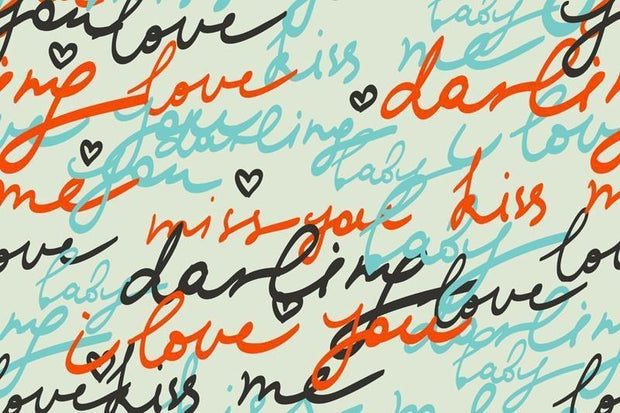 you love
baby
kiss me
ing love
darling
you
darling
baby i love
you
me
miss you
kiss m
baby
love
darling
baby
love
lo
i love you
ing
darling
baby
love kiss me